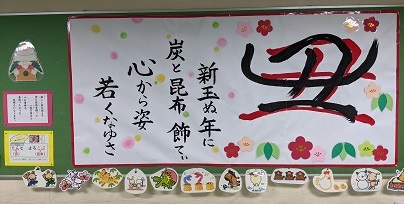 丑
新玉ぬ年に
炭と昆布 飾てぃ
心から姿
若くなゆさ